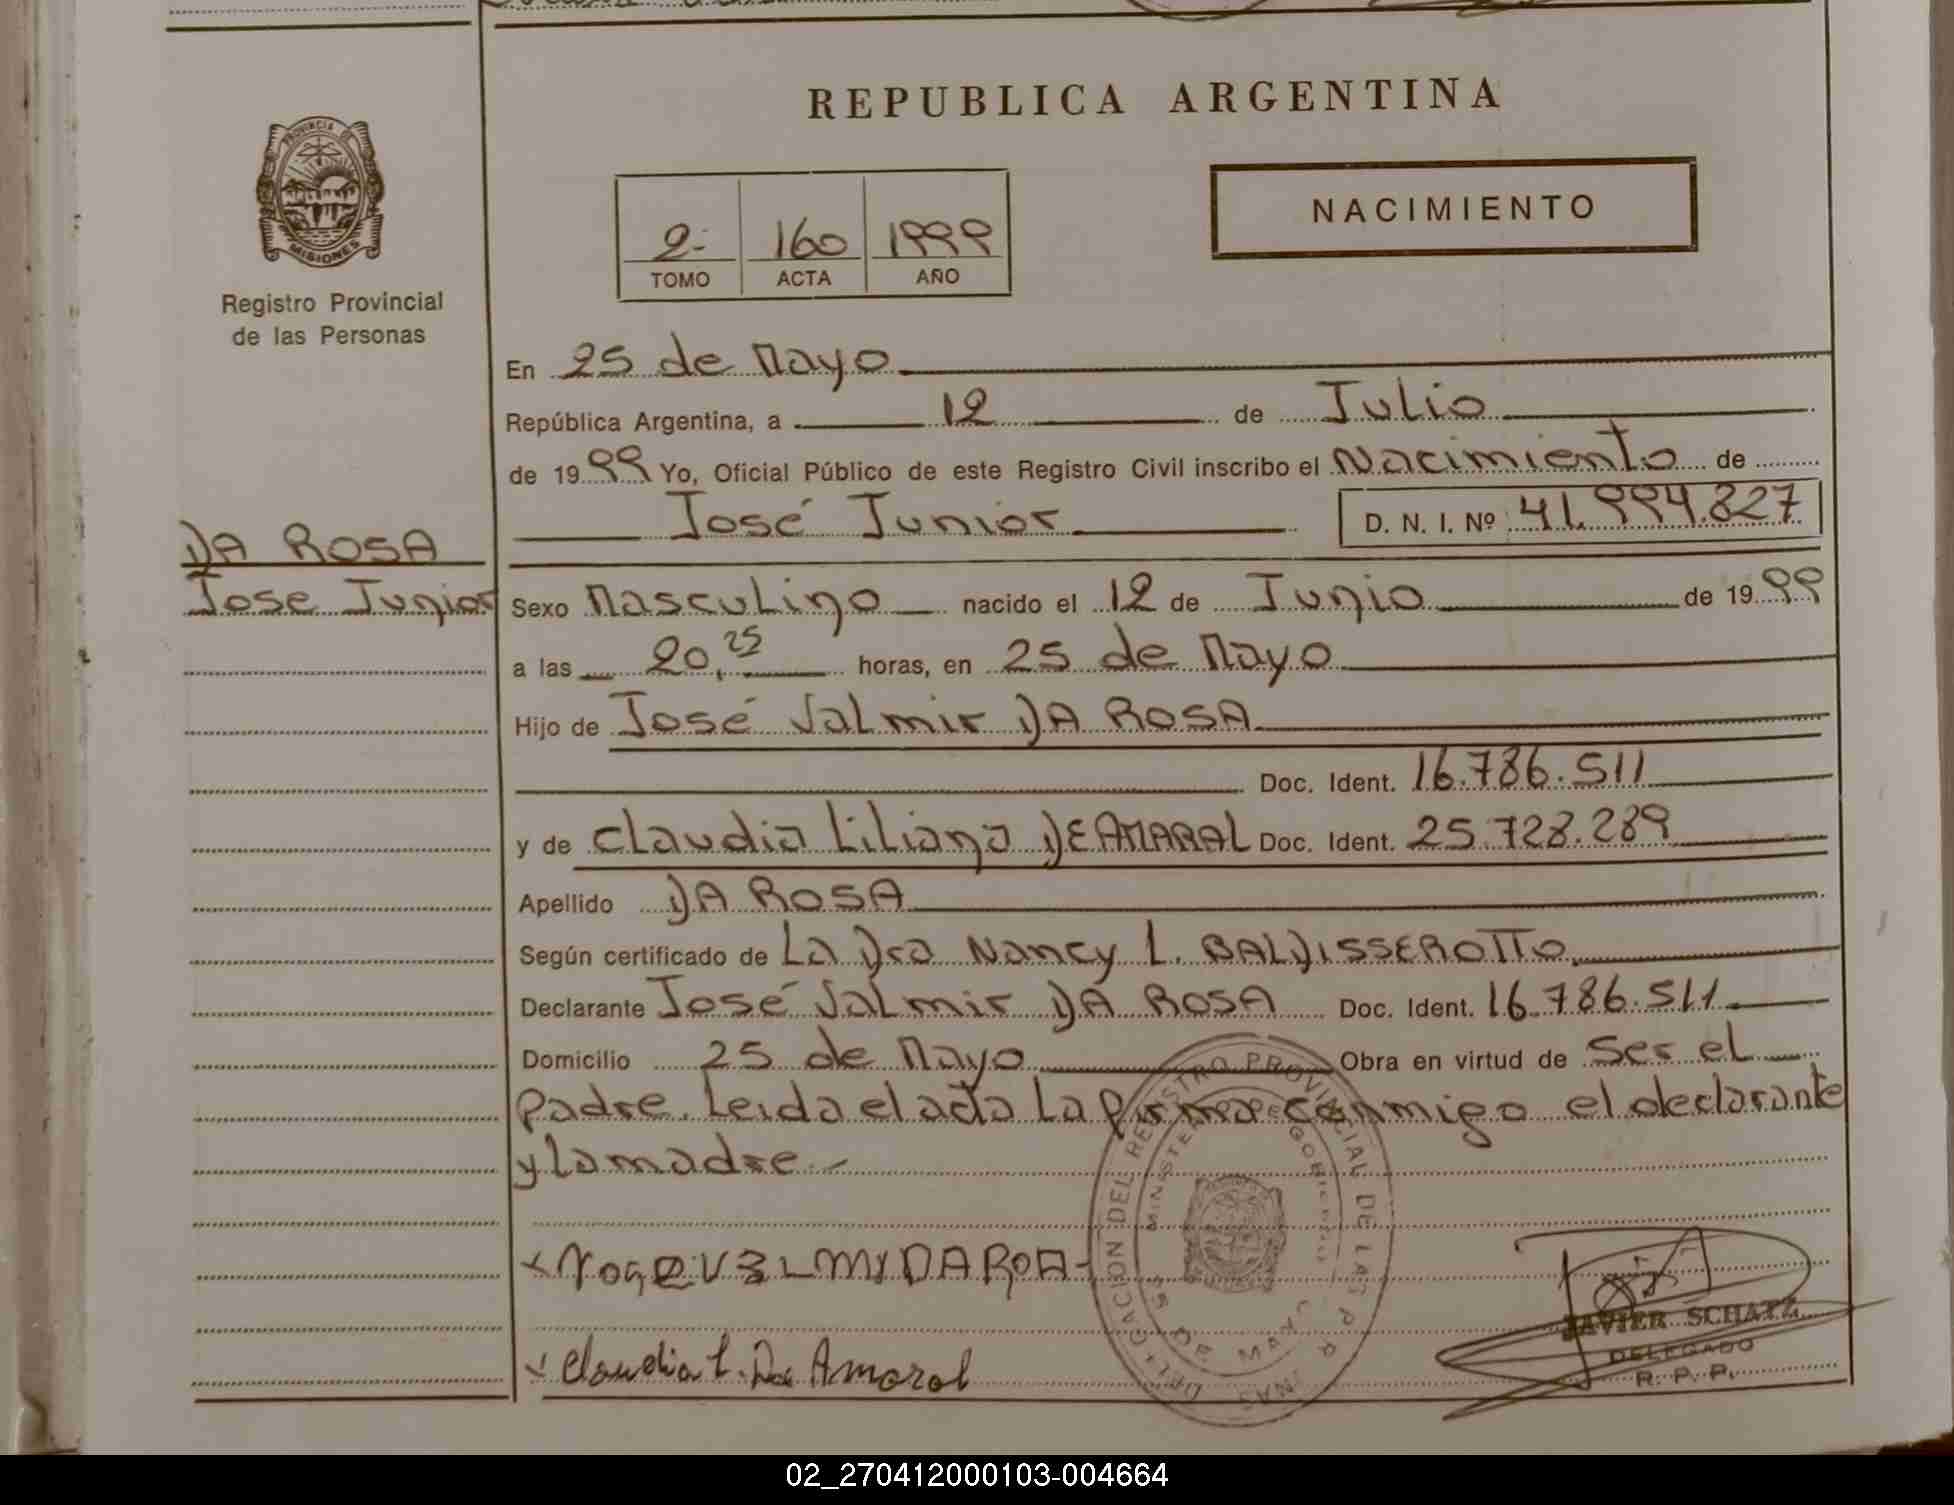 REPUBLICA ARGENTINA
PROVINCIA DE
MISIONES
Registro Provincial
de las Personas
2-
TOMO
160
ACTA
1999
AÑO
NACIMIENTO
En 25 de Mayo
República Argentina, a 12 de Julio
de 1999 Yo, Oficial Público de este Registro Civil inscribo el Nacimiento de
José Junior D. N. I. Nº 41.994.827
DA ROSA
Jose Junior
Sexo Masculino nacido el 12 de Junio de 1999
a las 20,25 horas, en 25 de Mayo
Hijo de José Valmir DA ROSA
Doc. Ident. 16.786.511
y de Claudia Liliana DEAMARAL Doc. Ident. 25.728.289
Apellido DA ROSA
Según certificado de La Dra Nancy L. BALDISSEROTTO
Declarante José Valmir DA ROSA Doc. Ident. 16.786.511
Domicilio 25 de Mayo Obra en virtud de Ser el
padre. Leida el acta La firma conmigo el declarante
y la madre.-
DELEGACION DEL REGISTRO PROVINCIAL DE LAS
MINISTERIO DE GOBIERNO
25 DE MAYO
Claudia L. De Amaral
JAVIER SCHATZ
DELEGADO
R. P. P.
02_270412000103-004664